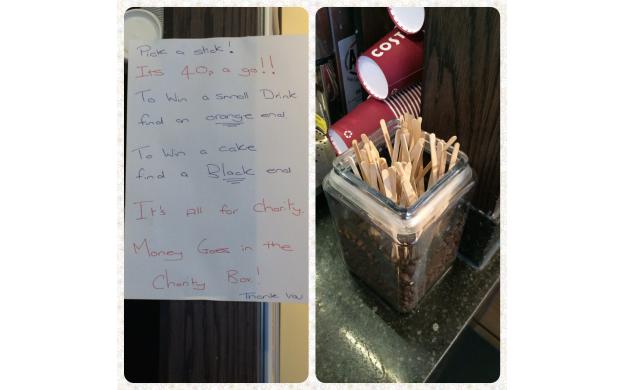 Pick a stick!
Its 40p a go!!
To Win a small Drink
find an orange end
To Win a cake
find a Black end
It's all for Charity.
Money Goes in the
Charity Box!
Thank you
COST